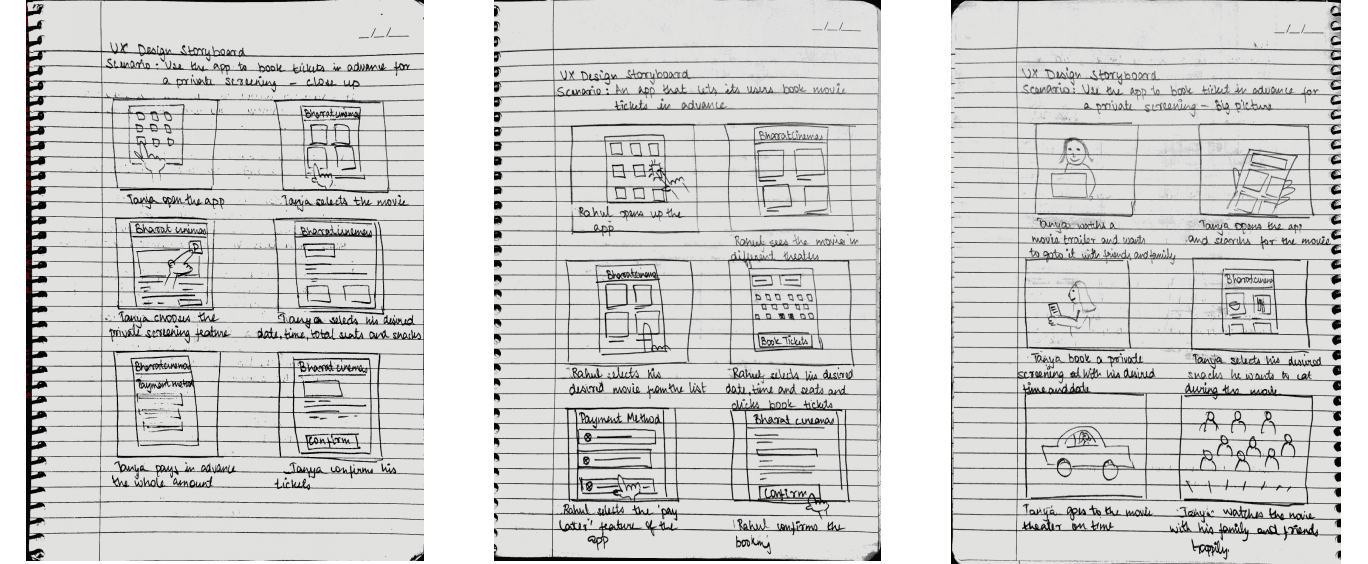 _/_/__
UX Design Storyboard
Scenario: Use the app to book tickets in advance for
a private screening - close up
Bharatcinemas
Tanya open the app
Tanya selects the movie
Bharat cinemas
P
Bharatcinemas
Tanya chooses the
private screening feature
Tanya selects his desired
date, time, total seats and snacks
Bharatcinemas
Payment metod
Bharat cinemas
Confirm
Tanya pays in advance
the whole amount
Tanya confirms his
tickets
_/_/__
UX Design Storyboard
Scenario: An app that lets its users book movie
tickets in advance
BharatCinemas
Rahul opens up the
app
Rahul sees the movie in
different theaters
Bharatcinemas
Book Tickets
Rahul selects his
desired movie from the list
Rahul selects his desired
date, time and seats and
clicks book tickets
Payment Method
Bharat cinemas
Confirm
Rahul selects the "pay
later" feature of the
app
Rahul confirms the
booking
_/_/__
UX Design Storyboard
Scenario: Use the app to book ticket in advance for
a private screening - Big picture
Tanya watchs a
movie trailer and wants
to goto it with friends and family
Tanya opens the app
and searchs for the movie
Bharatcinema
Tanya book a private
screening at with his desired
time and date
Tanya selects his desired
snacks he wants to eat
during the movie
Tanya goes to the movie
theater on time
Tanya watches the movie
with his family and friends
happily